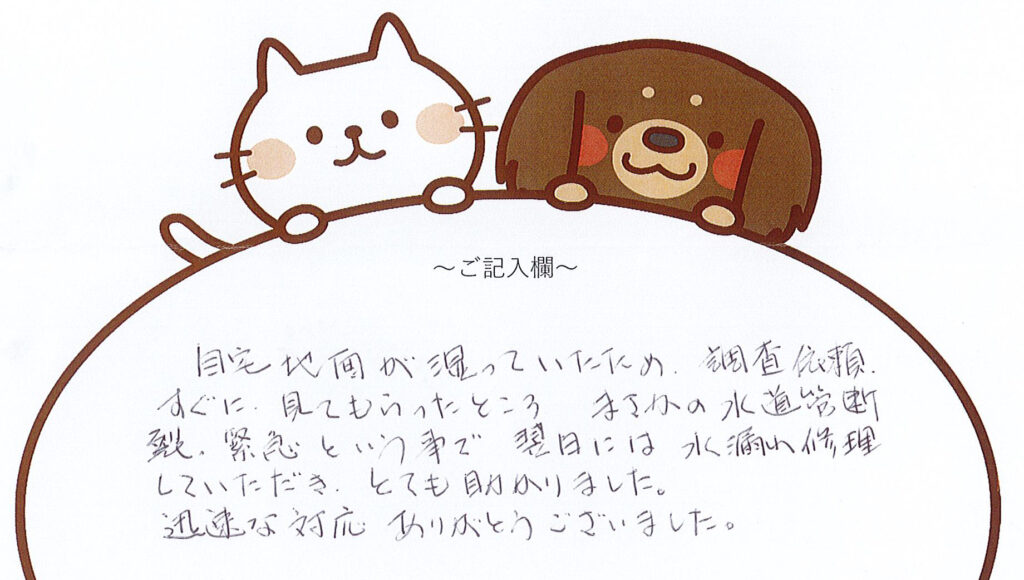 ～ご記入欄～
自宅地面が湿っていたため、調査依頼、
すぐに、見てもらったところ まさかの水道管断
裂、緊急という事で 翌日には水漏れ修理
していただき、とても助かりました。
迅速な対応 ありがとうございました。